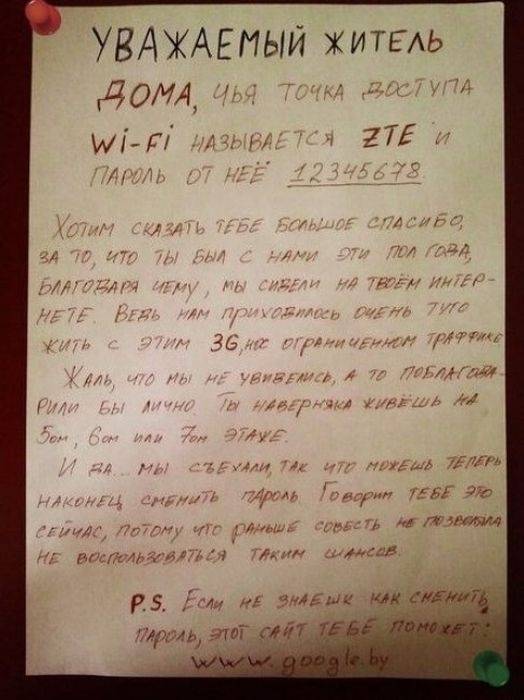 УВАЖАЕМЫЙ ЖИТЕЛЬ
ДОМА, ЧЬЯ ТОЧКА ДОСТУПА
Wi-Fi НАЗЫВАЕТСЯ ZTE И
ПАРОЛЬ ОТ НЕЁ 12345678.
ХОТИМ СКАЗАТЬ ТЕБЕ БОЛЬШОЕ СПАСИБО,
ЗА ТО, ЧТО ТЫ БЫЛ С НАМИ ЭТИ ПОЛ ГОДА,
БЛАГОДАРЯ ЧЕМУ, МЫ СИДЕЛИ НА ТВОЁМ ИНТЕР-
НЕТЕ. ВЕДЬ НАМ ПРИХОДИЛОСЬ ОЧЕНЬ ТУГО
ЖИТЬ С ЭТИМ 3G, ОГРАНИЧЕННОМ ТРАФФИКЕ
ЖАЛЬ, ЧТО МЫ НЕ УВИДЕЛИСЬ, А ТО ПОБЛАГОДА-
РИЛИ БЫ ЛИЧНО. ТЫ НАВЕРНЯКА ЖИВЁШЬ НА
5ОМ, 6ОМ ИЛИ 7ОМ ЭТАЖЕ.
И ДА... МЫ СЪЕХАЛИ, ТАК ЧТО МОЖЕШЬ ТЕПЕРЬ
НАКОНЕЦ СМЕНИТЬ ПАРОЛЬ ГОВОРИМ ТЕБЕ ЭТО
СЕЙЧАС, ПОТОМУ ЧТО РАНЬШЕ СОВЕСТЬ НЕ ПОЗВОЛЯЛА
НЕ ВОСПОЛЬЗОВАТЬСЯ ТАКИМ ШАНСОВ.
P.S. ЕСЛИ НЕ ЗНАЕШЬ КАК СМЕНИТЬ
ПАРОЛЬ, ЭТОТ САЙТ ТЕБЕ ПОМОЖЕТ:
www.google.by